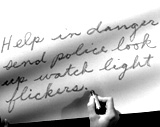 Help in danger
send police look
up watch light
flickers.